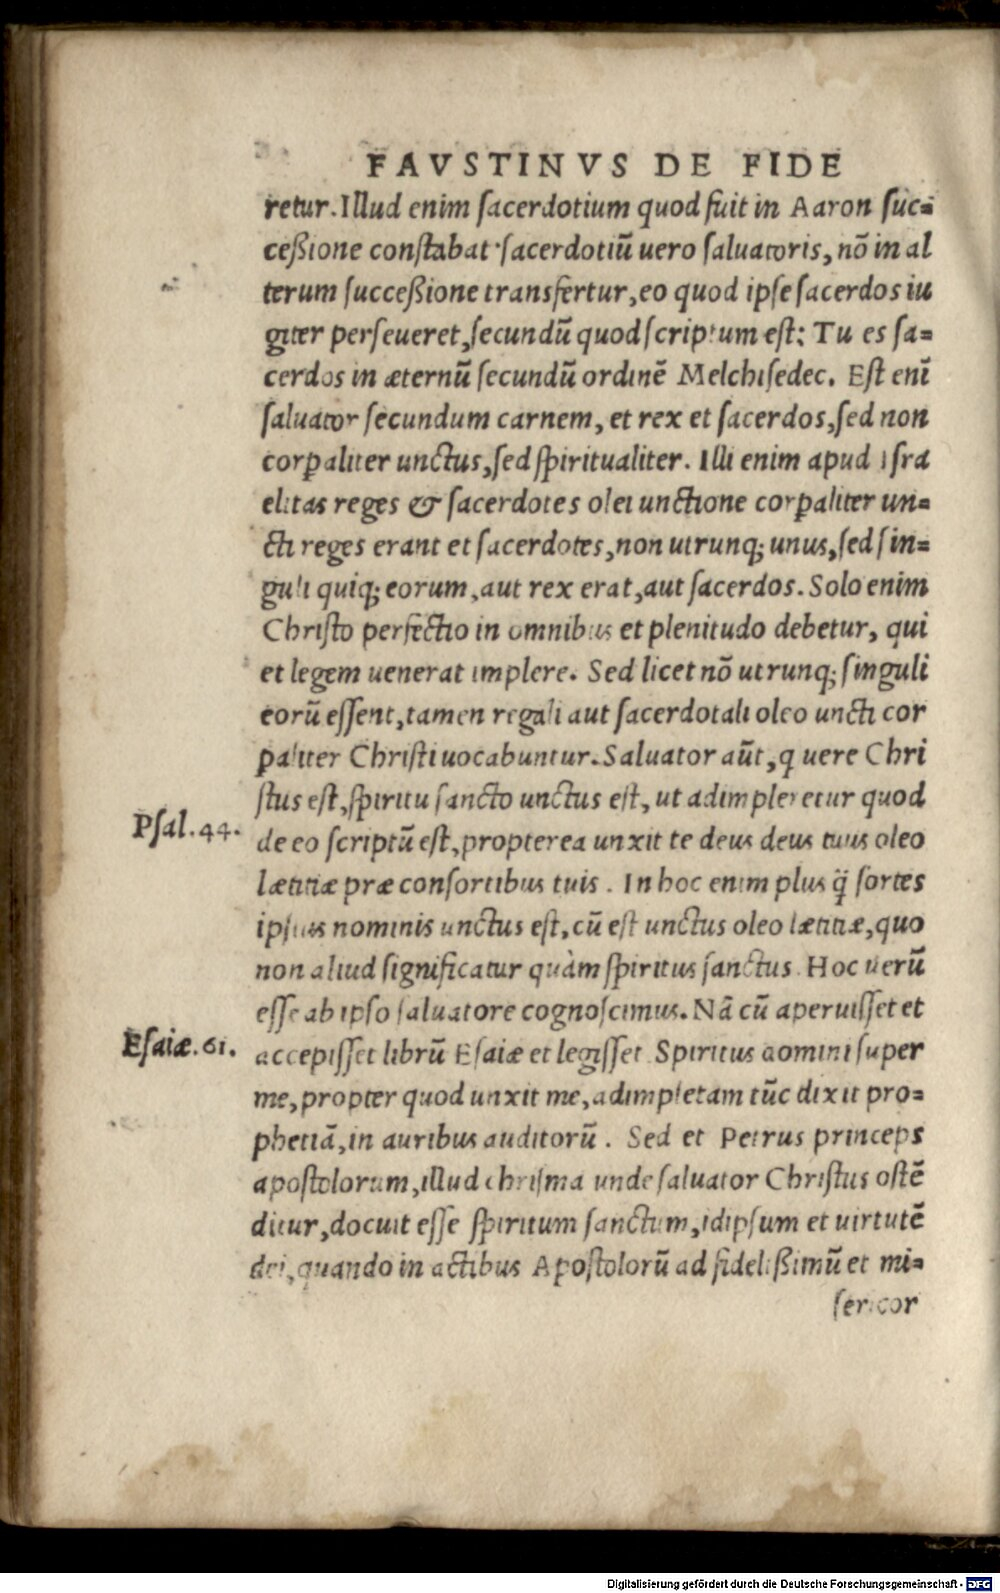 FAVSTINVS DE FIDE
retur. Illud enim ſacerdotium quod fuit in Aaron ſuc=
ceßione conſtabat · ſacerdotiũ uero ſaluatoris, nõ in al
terum ſucceßione transfertur, eo quod ipſe ſacerdos iu
giter perſeueret, ſecundũ quod ſcriptum eſt: Tu es ſa=
cerdos in æternũ ſecundũ ordinẽ Melchiſedec. Eſt enĩ
ſaluator ſecundum carnem, et rex et ſacerdos, ſed non
corꝑaliter unctus, ſed ſpiritualiter. Illi enim apud Iſra
elitas reges & ſacerdotes olei unctione corꝑaliter un=
cti reges erant et ſacerdotes, non utrunq; unus, ſed ſin=
guli quiq; eorum, aut rex erat, aut ſacerdos. Solo enim
Chriſto perfectio in omnibus et plenitudo debetur, qui
et legem uenerat implere. Sed licet nõ utrunq; ſinguli
eorũ eſſent, tamen regali aut ſacerdotali oleo uncti cor
ꝑaliter Chriſti uocabuntur. Saluator aũt, q uere Chri
ſtus eſt, ſpiritu ſancto unctus eſt, ut adimpleretur quod
Pſal. 44.
de eo ſcriptũ eſt, propterea unxit te deus deus tuus oleo
lætitiæ præ conſortibus tuis. In hoc enim plus q̃ ſortes
ipſius nominis unctus eſt, cũ eſt unctus oleo lætitiæ, quo
non aliud ſignificatur quàm ſpiritus ſanctus. Hoc uerũ
eſſe ab ipſo ſaluatore cognoſcimus. Nã cũ aperuiſſet et
Eſaiæ. 61.
accepiſſet librũ Eſaiæ et legiſſet. Spiritus domini ſuper
me, propter quod unxit me, adimpletam tũc dixit pro=
phetiã, in auribus auditorũ. Sed et Petrus princeps
apoſtolorum, illud chriſma unde ſaluator Chriſtus oſtẽ
ditur, docuit eſſe ſpiritum ſanctum, idipſum et uirtutẽ
dei, quando in actibus Apoſtolorũ ad fidelißimũ et mi=
ſericor
Digitalisierung gefördert durch die Deutsche Forschungsgemeinschaft - DFG